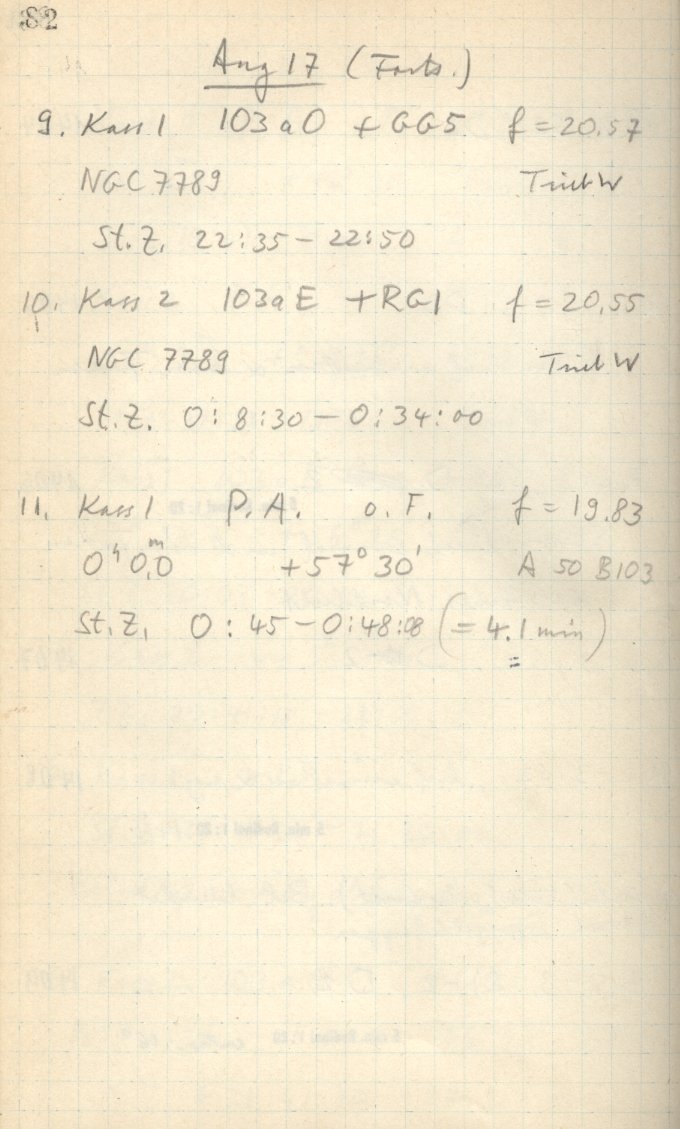 32
Aug 17 (Forts.)
9. Kass 1 103aO + GG5 f = 20.57
NGC 7789 Trieb W
St.Z. 22:35 – 22:50
10. Kass 2 103aE + RG1 f = 20.55
NGC 7789 Trieb W
St.Z. 0:8:30 – 0:34:00
11. Kass 1 P.A. o.F. f = 19.83
0ʰ 0,0ᵐ +57° 30' A 50 B103
St.Z. 0:45 – 0:48:08 (= 4.1 min)
5 min. Rodinal 1:20